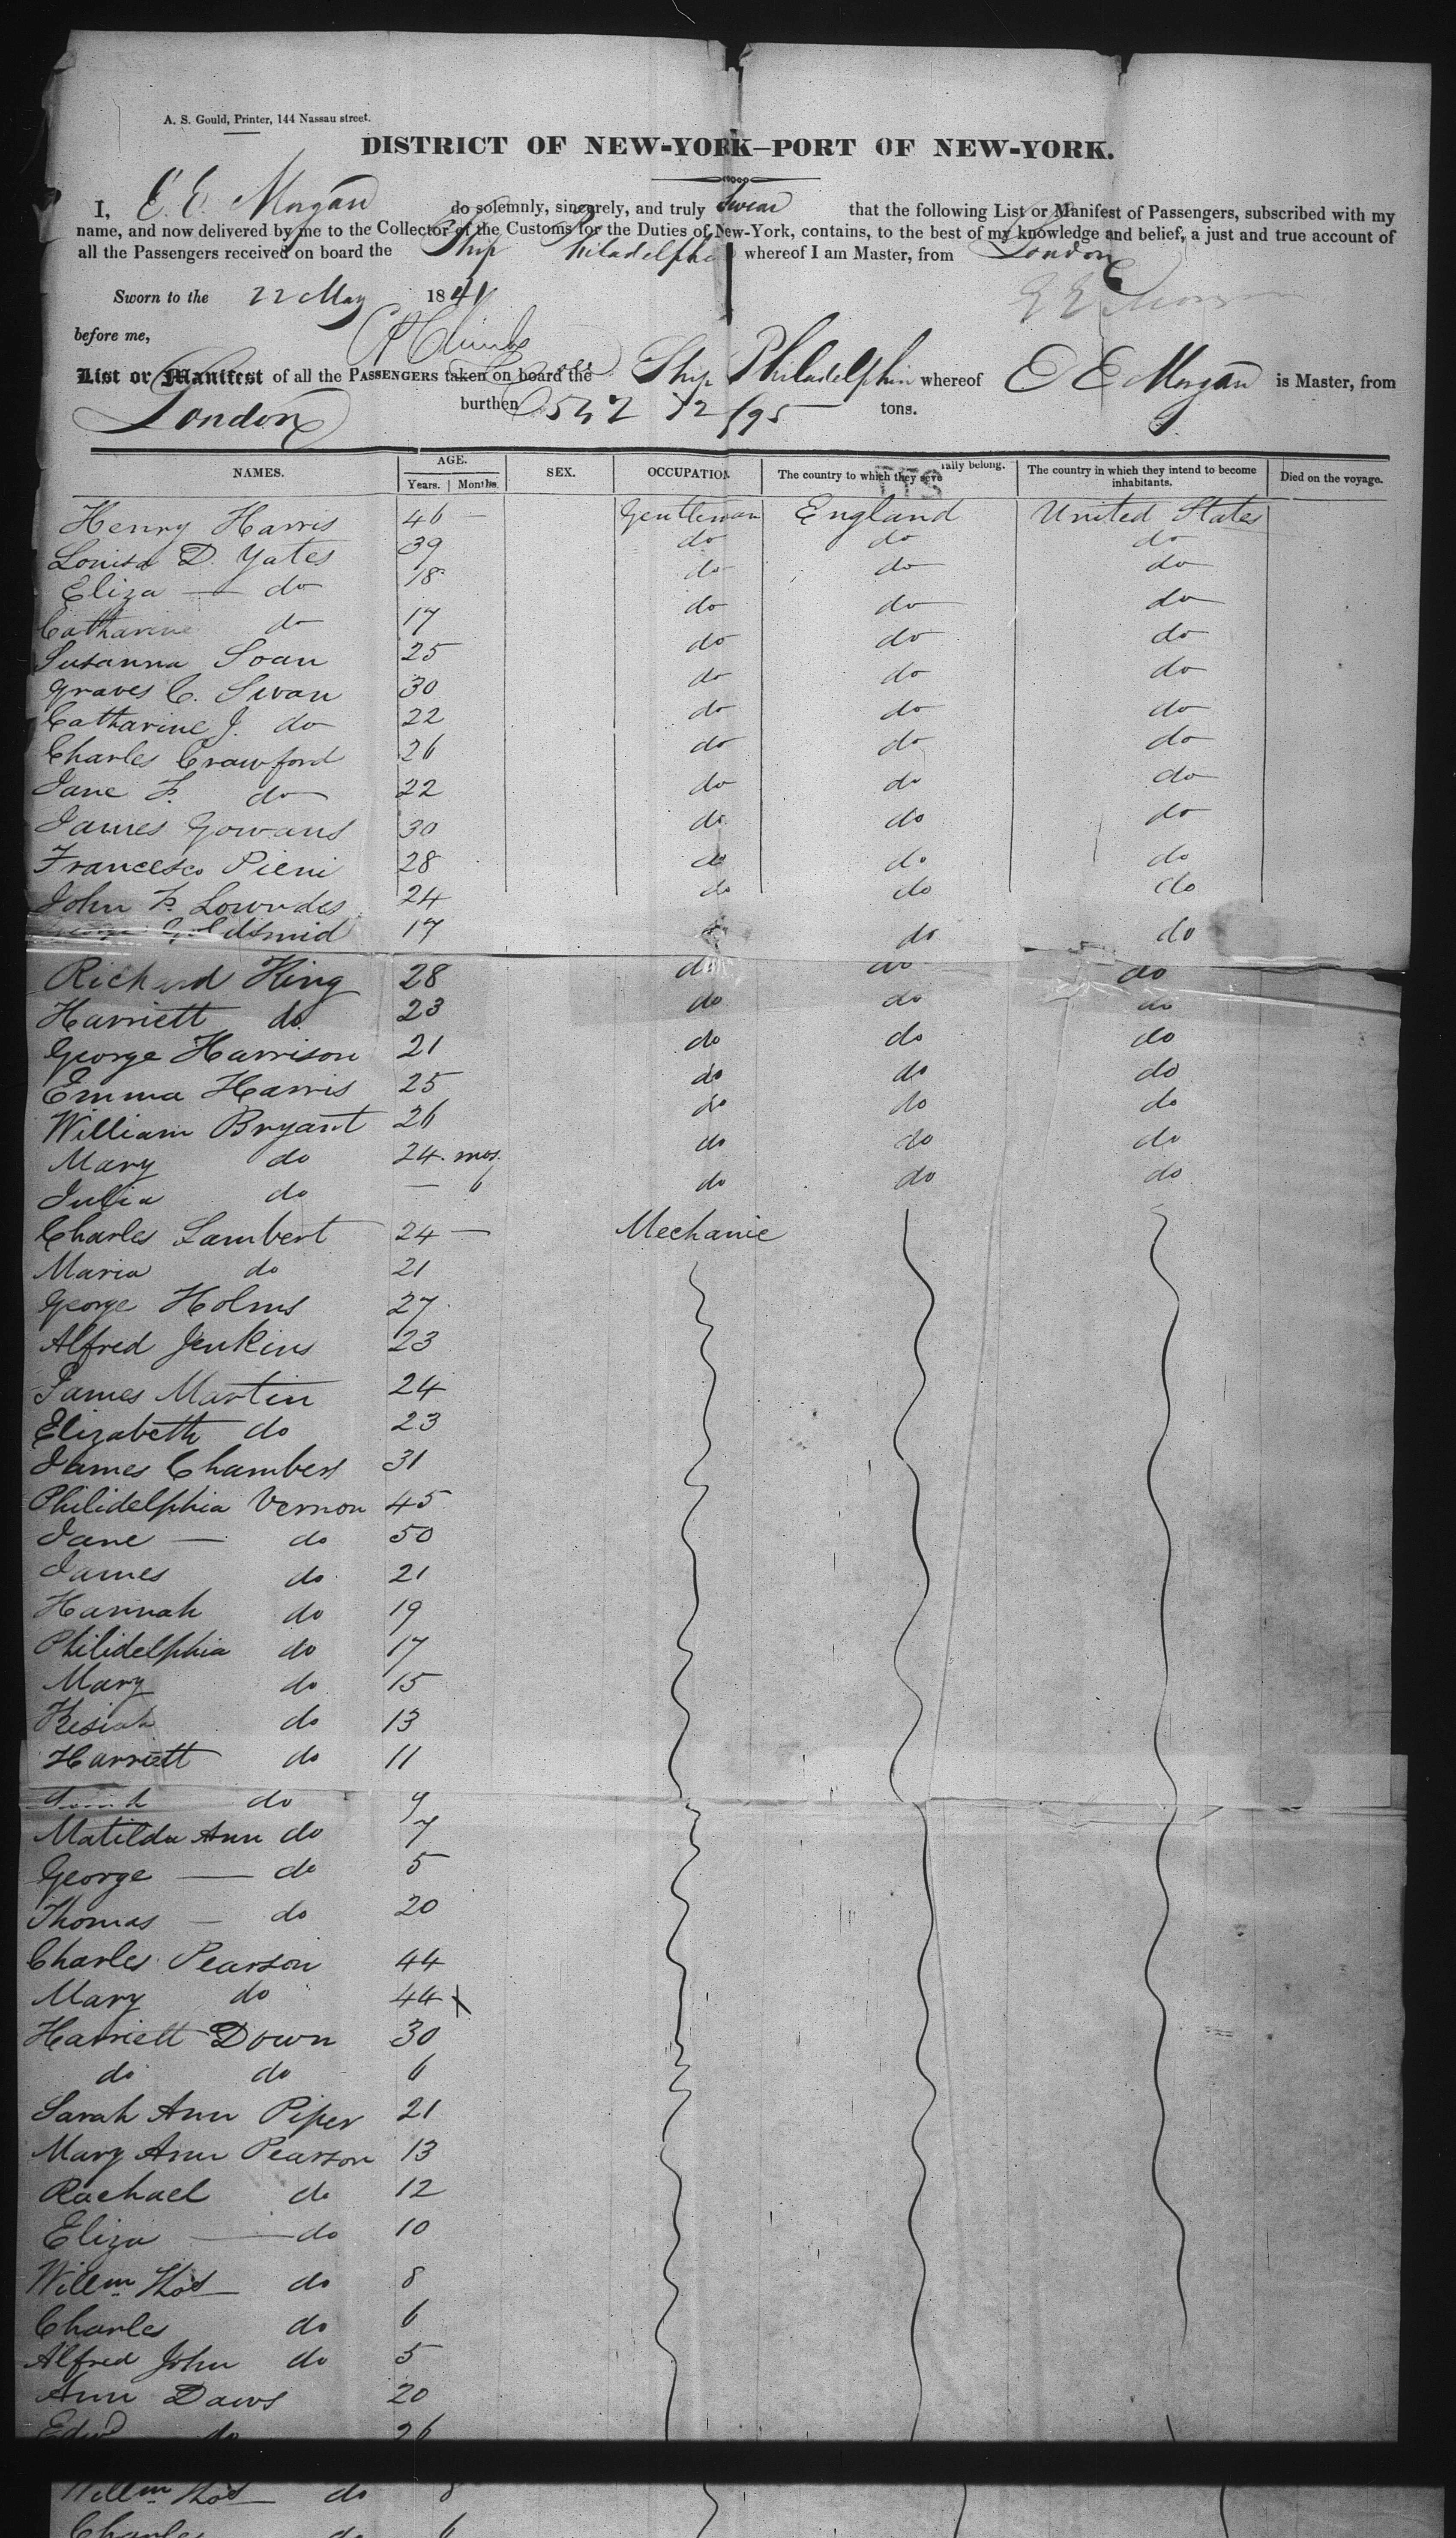 A. S. Gould, Printer, 144 Nassau street.
DISTRICT OF NEW-YORK—PORT OF NEW-YORK.
I, E. E. Morgan do solemnly, sincerely, and truly swear that the following List or Manifest of Passengers, subscribed with my
name, and now delivered by me to the Collector of the Customs for the Duties of New-York, contains, to the best of my knowledge and belief, a just and true account of
all the Passengers received on board the Ship Philadelphia whereof I am Master, from London
Sworn to the 22 May 1841
E E Morgan
before me,
List or Manifest of all the PASSENGERS taken on board the Ship Philadelphia whereof E E Morgan is Master, from
London burthen 542 72/95 tons.
NAMES. AGE. Years. Months. SEX. OCCUPATION. The country to which they seve rally belong. The country in which they intend to become inhabitants. Died on the voyage.
Henry Harris 46 — Gentleman England United States
Louisa D. Yates 39 do do do
Eliza — do 18 do do do
Catharine do 17 do do do
Susanna Soan 25 do do do
Graves C. Swan 30 do do do
Catharine J. do 22 do do do
Charles Crawford 26 do do do
Jane F. do 22 do do do
James Gowans 30 do do do
Francesco Pieni 28 do do do
John F. Lowndes 24 do do do
George Goldsmid 17 do do do
Richard King 28 do do do
Harriett do 23 do do do
George Harrison 21 do do do
Emma Harris 25 do do do
William Bryant 26 do do do
Mary do 24 mos. do do do
Julia do — 6 do do do
Charles Lambert 24 — Mechanic
Maria do 21
George Holms 27
Alfred Jenkins 23
James Martin 24
Elizabeth do 23
James Chambers 31
Philidelphia Vernon 45
Jane — do 50
James do 21
Hannah do 19
Philidelphia do 17
Mary do 15
Kesiah do 13
Harriett do 11
do 9
Matilda Ann do 7
George — do 5
Thomas — do 20
Charles Pearson 44
Mary do 44
Harriett Down 30
do do 6
Sarah Ann Piper 21
Mary Ann Pearson 13
Rachael do 12
Eliza — do 10
Willm Thos do 8
Charles do 6
Alfred John do 5
Ann Daws 20
Edwd do 26
Willm Thos do 8
Charles do 6